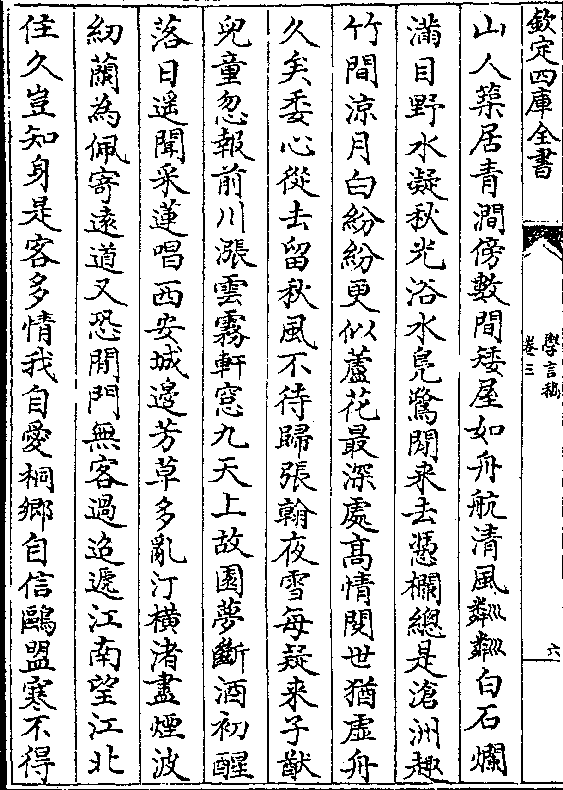 欽定四庫全書
學言稿
卷三
六
山人築居青澗傍數間矮屋如舟航清風粼粼白石爛
滿目野水凝秋光浴水鳧鷖閒来去憑欄總是滄洲趣
竹間涼月白紛紛更似蘆花最深處高情閱世猶虚舟
久矣委心從去留秋風不待歸張翰夜雪每疑来子猷
兒童忽報前川漲雲霧軒窓九天上故園夢斷酒初醒
落日遥聞采蓮唱西安城邉芳草多亂汀橫渚盡煙波
紉蘭為佩寄遠道又恐閒門無客過迢遞江南望江北
住久豈知身是客多情我自愛桐鄉自信鷗盟寒不得